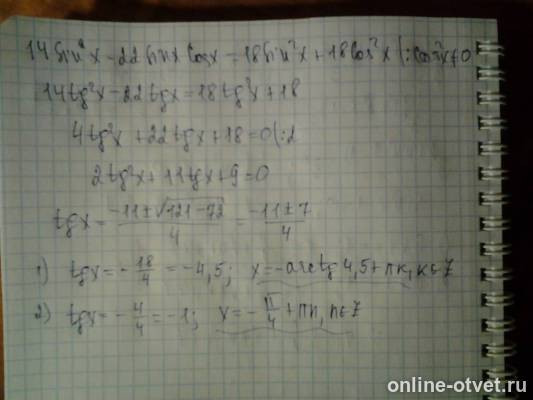 14 sin²x - 22 sinx cosx = 18 sin²x + 18 cos²x (: cos²x ≠ 0
14 tg²x - 22 tgx = 18 tg²x + 18
4 tg²x + 22 tgx + 18 = 0 (:2
2 tg²x + 11 tgx + 9 = 0
tgx = (-11 ± √121 - 72)/4 = (-11 ± 7)/4
1) tgx = -18/4 = -4,5; x = -arctg 4,5 + πk, k ∈ Z
2) tgx = -4/4 = -1; x = -π/4 + πn, n ∈ Z
online-otvet.ru